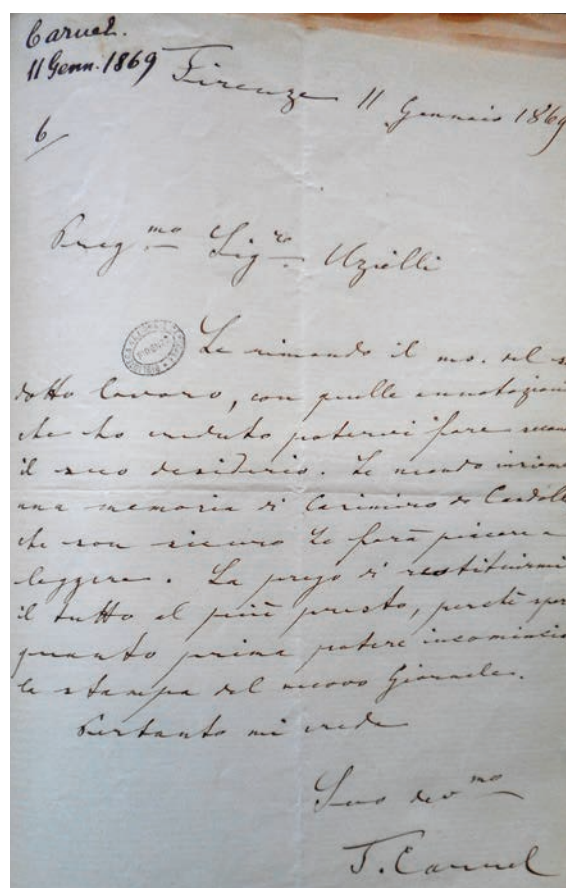 Caruel.
11 Genn. 1869
6
Firenze 11 Gennaio 1869
Preg.mo Sig.re Uzielli
Le rimando il ms. del s
dotto lavoro, con quelle annotazioni
che ho creduto potervi fare secon
il suo desiderio. Le mando insieme
una memoria di Casimiro de Candolle
che son sicuro Le farà piacere a
leggere. La prego di restituirmi
il tutto al più presto, perchè sper
quanto prima potere incomincia
la stampa del nuovo Giornale.
Pertanto mi creda
Suo dev.mo
T. Caruel